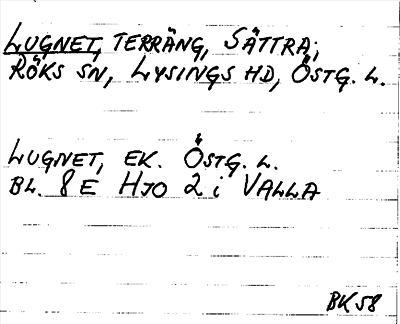 LUGNET, TERRÄNG, SÄTTRA,
RÖKS SN, LYSINGS HD, ÖSTG. L.
LUGNET, EK. ÖSTG. L.
BL. 8 E HJO 2 i VALLA
BK 58